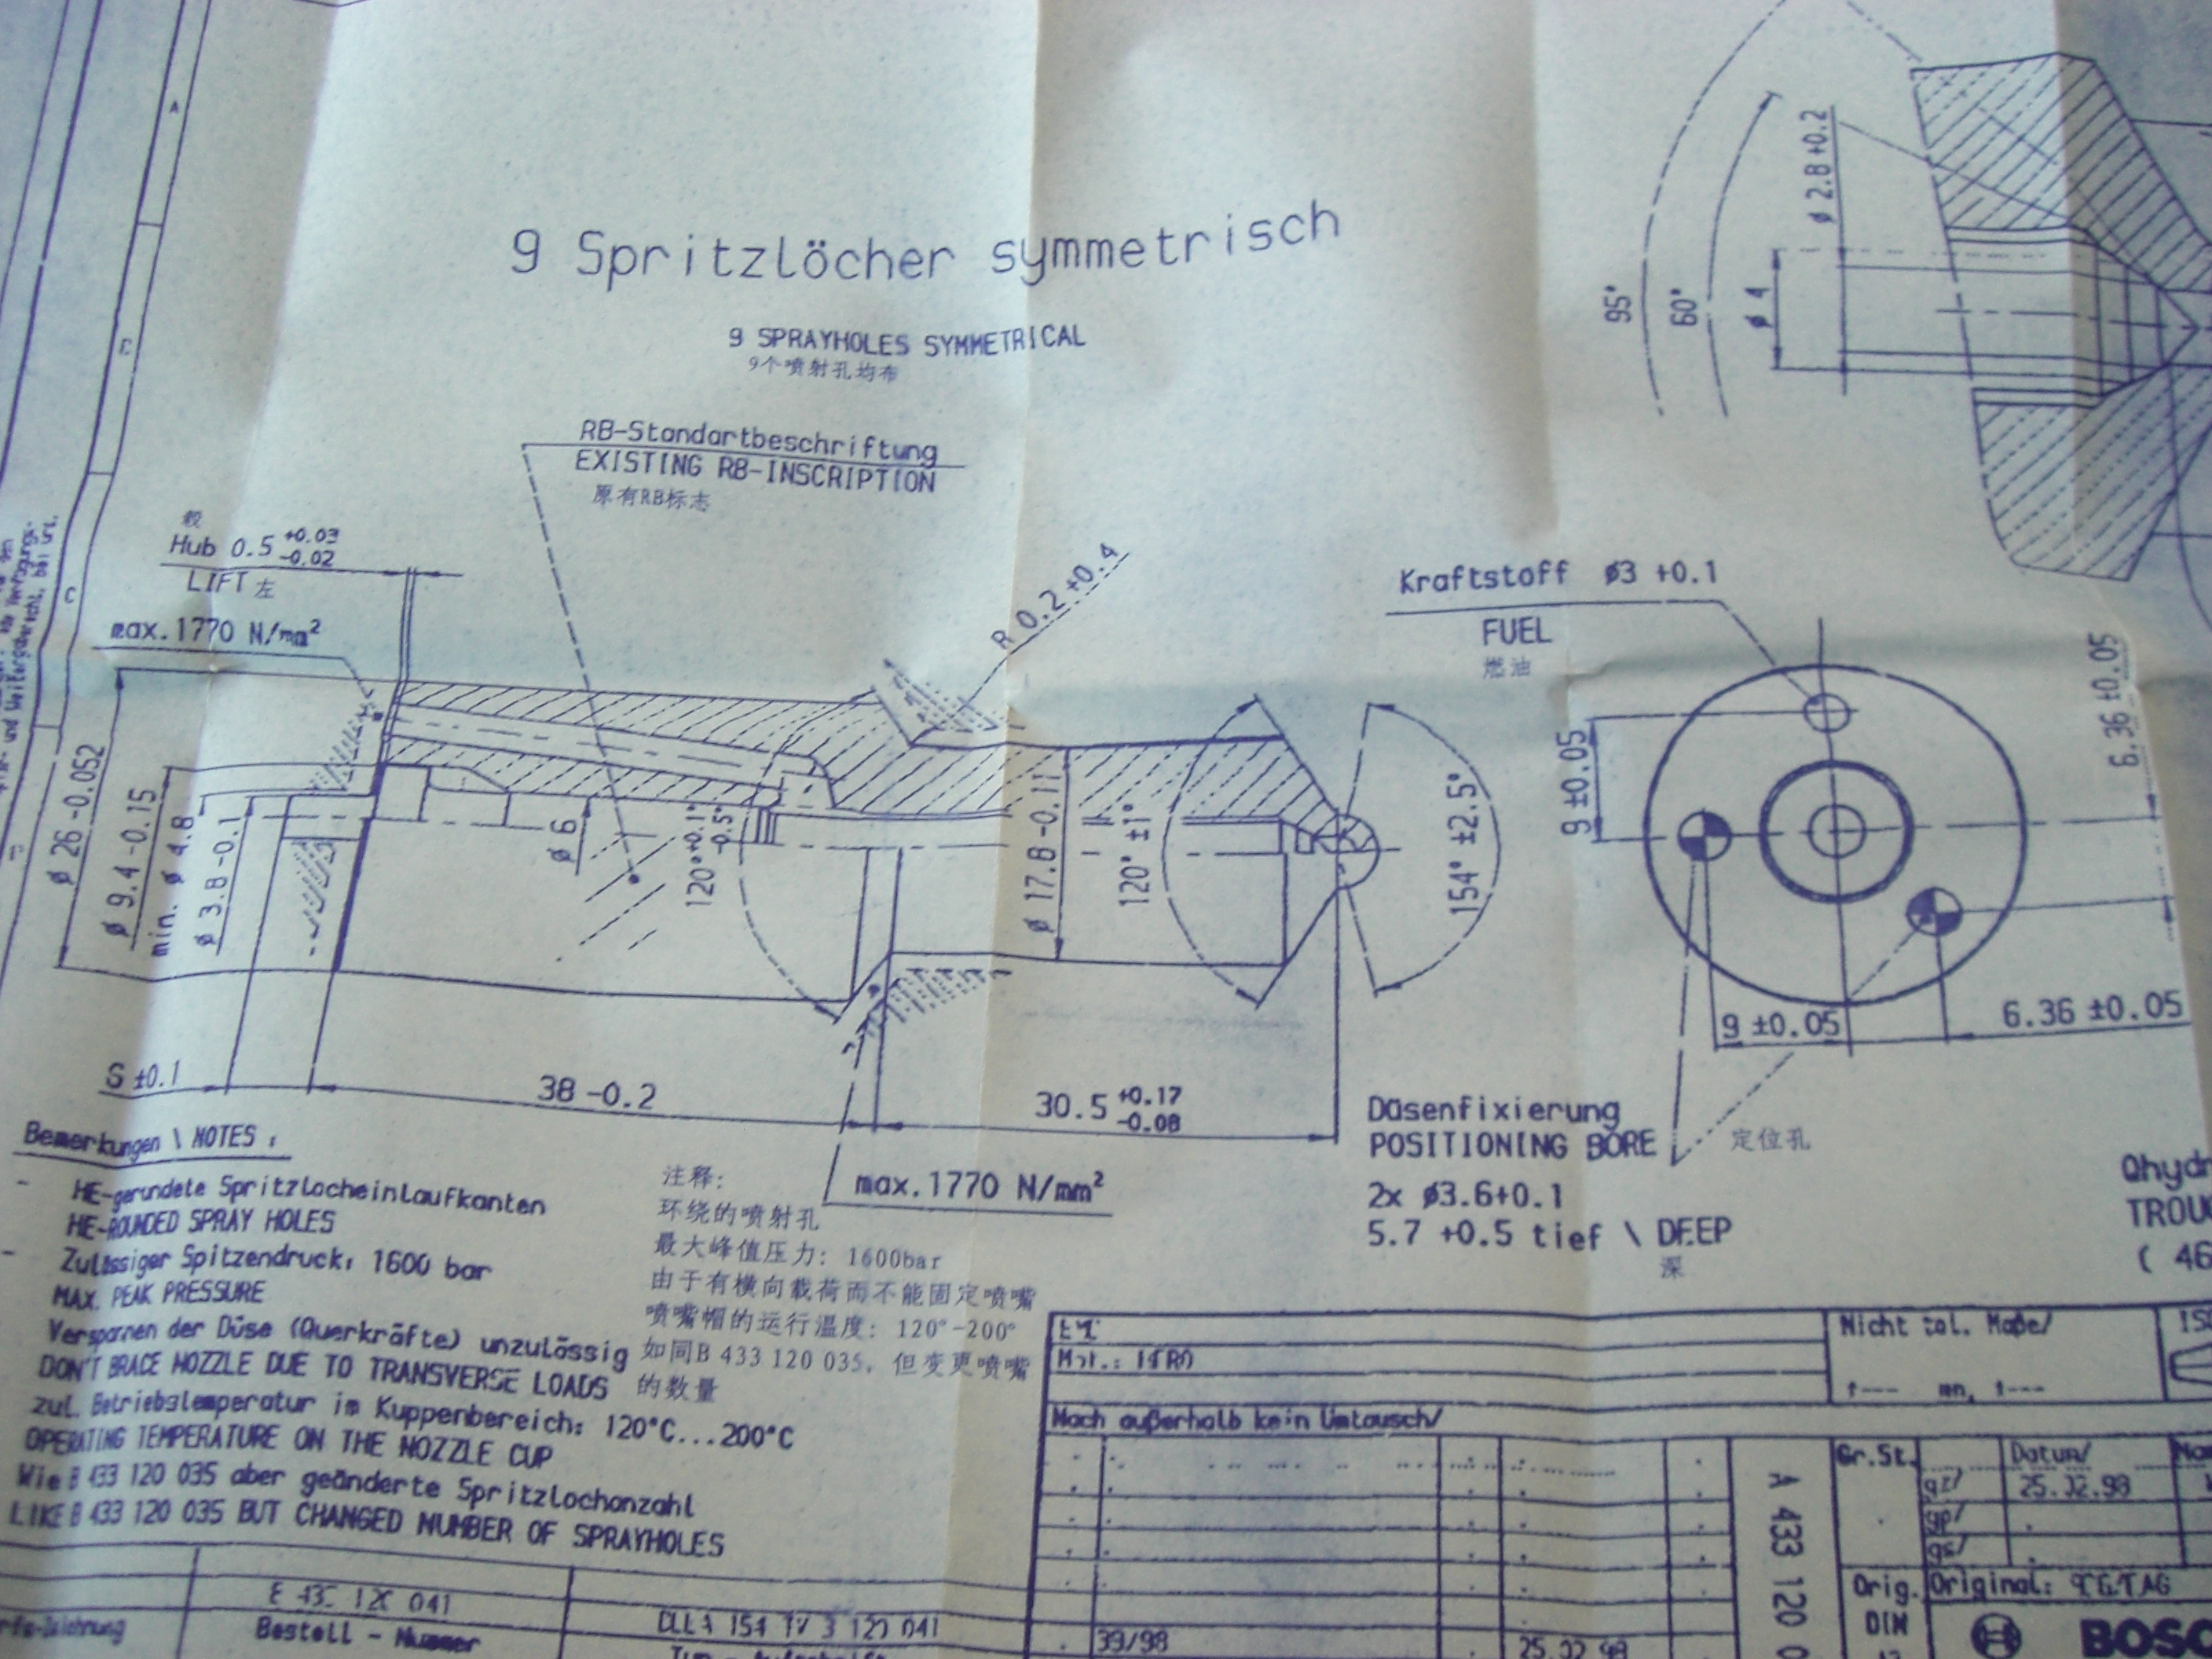 A
C
9 Spritzlöcher symmetrisch
9 SPRAYHOLES SYMMETRICAL
9个喷射孔均布
RB-Standartbeschriftung
EXISTING RB-INSCRIPTION
原有RB标志
Hub 0.5 +0.03 -0.02
LIFT 左
max.1770 N/mm²
R 0.2 +0.4
ø 2.8 +0.2
95°
60°
ø 4
Kraftstoff ø3 +0.1
FUEL
燃油
ø 26 -0.052
ø 9.4 -0.15
min. ø 4.8
ø 3.8 -0.1
ø 6
120° +0.1° -0.5°
ø 17.8 -0.11
120° ±1°
154° ±2.5°
9 ±0.05
6.36 ±0.05
9 ±0.05
6.36 ±0.05
S ±0.1
38 -0.2
30.5 +0.17 -0.08
max.1770 N/mm²
Düsenfixierung
POSITIONING BORE
定位孔
2x ø3.6+0.1
5.7 +0.5 tief \ DEEP
深
Qhydr
TROU
( 46
Bemerkungen \ NOTES :
- HE-gerundete Spritzlocheinlaufkanten
HE-ROUNDED SPRAY HOLES
- Zulässiger Spitzendruck: 1600 bar
MAX. PEAK PRESSURE
Verspannen der Düse (Querkräfte) unzulässig
DON'T BRACE NOZZLE DUE TO TRANSVERSE LOADS
zul. Betriebstemperatur im Kuppenbereich: 120°C...200°C
OPERATING TEMPERATURE ON THE NOZZLE CUP
Wie B 433 120 035 aber geänderte Spritzlochanzahl
LIKE B 433 120 035 BUT CHANGED NUMBER OF SPRAYHOLES
注释:
环绕的喷射孔
最大峰值压力: 1600bar
由于有横向载荷而不能固定喷嘴
喷嘴帽的运行温度: 120°-200°
如同B 433 120 035, 但变更喷嘴
的数量
Nicht tol. Maße/
Nach außerhalb kein Umtausch/
Gr.St.
Datum/
25.02.98
A 433 120 0
Orig.
Original:
DIN
BOSC
120 041
Bestell - Nummer
39/98
25.02.98